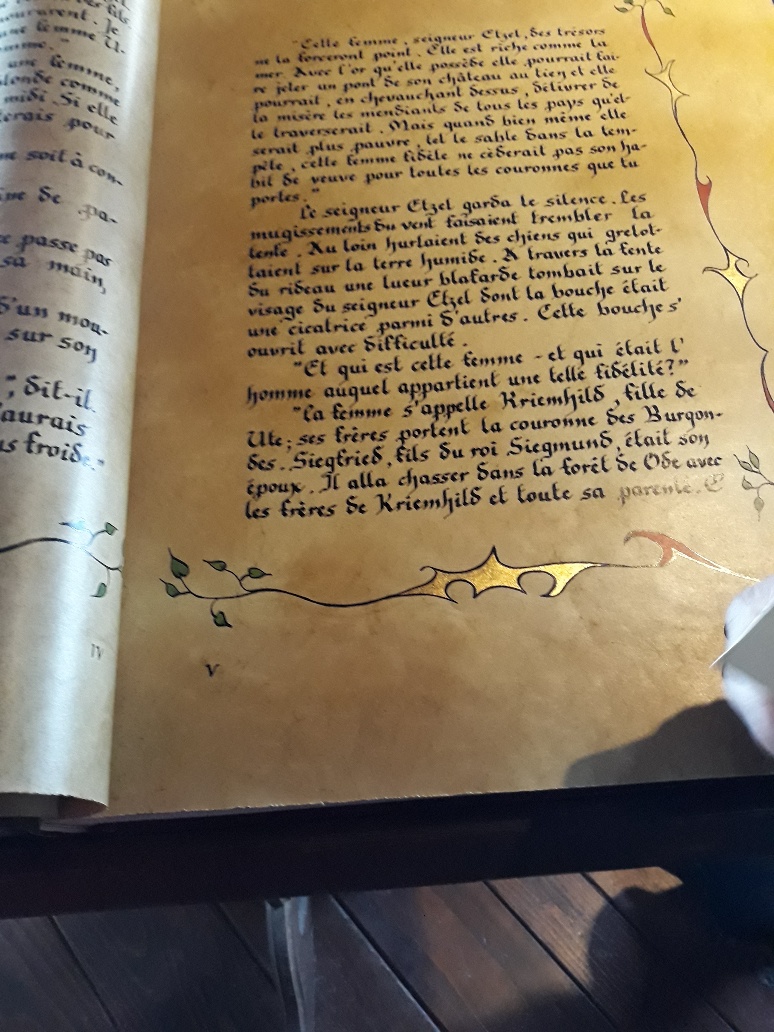 ourarent. Je
une femme U-
mme."
une femme,
blonde comme
midi. Si elle
terais pour
me soit à con-
ne de pa-
ce passe pas
sa main,
d'un mou-
sur son
", dit-il.
'aurais
us froide."
IV
"Cette femme, seigneur Etzel, des trésors
ne la forceront point. Elle est riche comme la
mer. Avec l'or qu'elle possède elle pourrait fai-
re jeter un pont de son château au tien et elle
pourrait, en chevauchant dessus, délivrer de
la misère les mendiants de tous les pays qu'el-
le traverserait. Mais quand bien même elle
serait plus pauvre, tel le sable dans la tem-
pête, cette femme fidèle ne cèderait pas son ha-
bit de veuve pour toutes les couronnes que tu
portes."
Le seigneur Etzel garda le silence. Les
mugissements du vent faisaient trembler la
tente. Au loin hurlaient des chiens qui grelot-
taient sur la terre humide. A travers la fente
du rideau une lueur blafarde tombait sur le
visage du seigneur Etzel dont la bouche était
une cicatrice parmi d'autres. Cette bouche s'
ouvrit avec difficulté.
"Et qui est cette femme - et qui était l'
homme auquel appartient une telle fidélité?"
"La femme s'appelle Kriemhild, fille de
Ute; ses frères portent la couronne des Burgon-
des. Siegfried, fils du roi Siegmund, était son
époux. Il alla chasser dans la forêt de Ode avec
les frères de Kriemhild et toute sa parenté. E
V